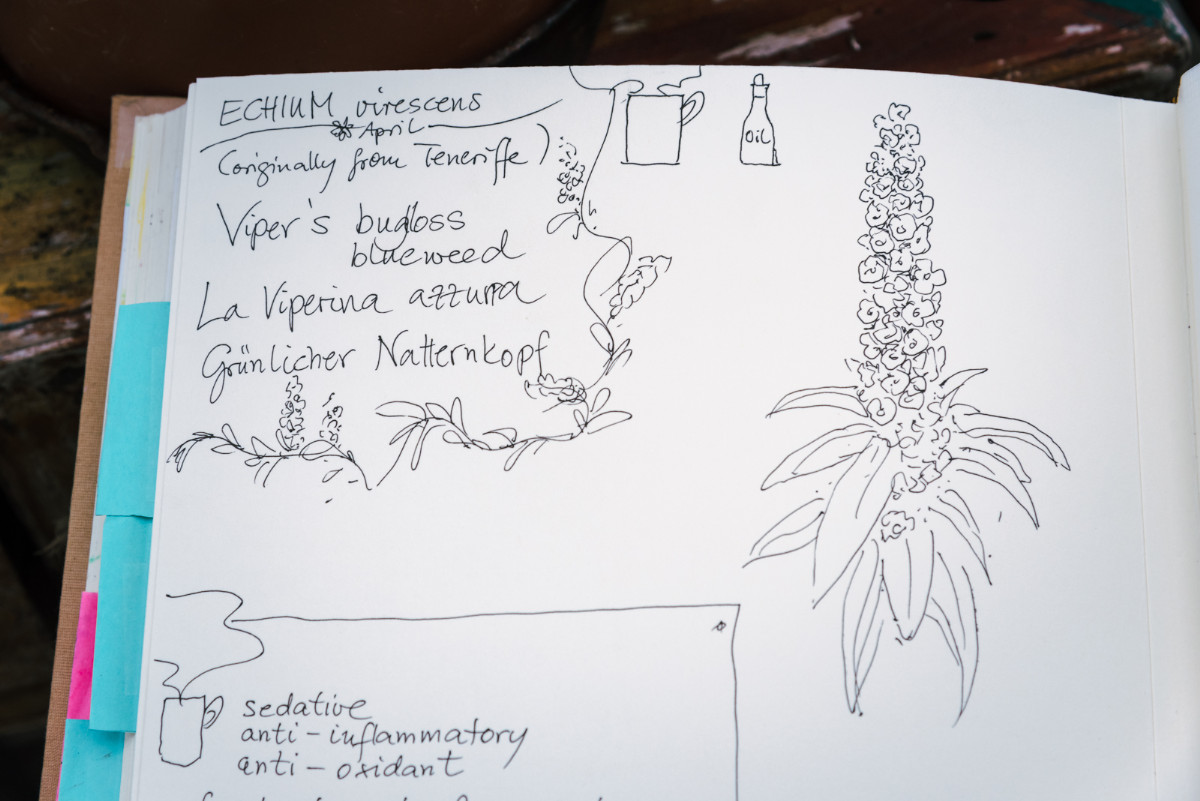 ECHIUM virescens
April
(originally from Teneriffe)
Oil
Viper's bugloss
blueweed
La Viperina azzurra
Grünlicher Natternkopf
sedative
anti-inflammatory
anti-oxidant